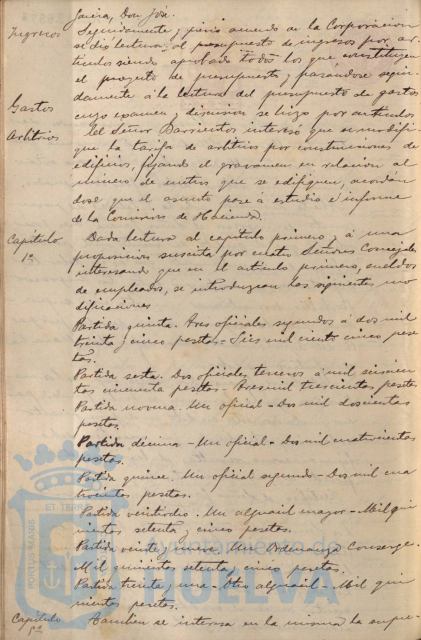 Javier, Don José.
Ingresos Seguidamente y previo acuerdo de la Corporación
se dió lectura al presupuesto de ingresos por ar-
tículos siendo aprobado todos los que constituyen
el proyecto de presupuesto y pasandose segui-
damente á la lectura del presupuesto de gastos
Gastos cuyo examen y discusion se hizo por artículos
Arbitrios El Señor Barrientos interesó que se modifi-
que la tarifa de arbitrios por construcciones de
edificios, fijando el gravamen en relacion al
número de metros que se edifiquen, acordán
dose que el asunto pase á estudio é informe
de la Comision de Hacienda.
Capitulo 1º Dada lectura al capitulo primero y á una
proposicion suscrita por cuatro Señores Concejales
interesando que en el articulo primero, sueldos
de empleados, se introduzcan las siguientes mo
dificaciones
Partida quinta. Tres oficiales segundos á dos mil
treinta y cinco pesetas - Seis mil ciento cinco pese
tas.
Partida sexta. Dos oficiales terceros á mil seiscien
tos cincuenta pesetas - Tres mil trescientas pesetas
Partida novena. Un oficial - Dos mil doscientas
pesetas.
Partida décima - Un oficial - Dos mil cuatrocientas
pesetas.
Partida quince. Un oficial segundo - Dos mil cua
trocientas pesetas.
Partida veintiocho. Un alguacil mayor - Mil qui
nientas setenta y cinco pesetas.
Partida veinte y nueve. Un Ordenanza Conserge -
Mil quinientas setenta y cinco pesetas.
Partida treinta y una - Otro alguacil - Mil qui
nientas pesetas.
Capitulo Tambien se interesa en la misma la supre-
PORTUS MARIS
ET TERRAE
Ayuntamiento de
HUELVA